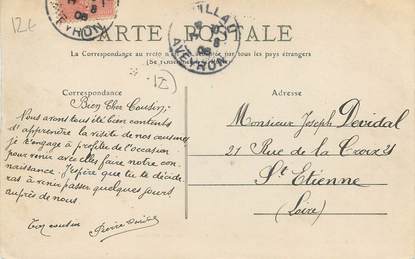 12€
AVEYRON
08
MILLAU
AVEYRON
08
CARTE POSTALE
La Correspondance au recto n'est pas acceptée par tous les pays étrangers
Correspondance
Adresse
Bien Cher Cousin,
Nous avons tous été bien contents
d'apprendre la visite de nos cousines
je t'engage à profiter de l'occasion
pour venir avec elles faire notre con-
naissance. J'espère que tu te décide-
ras à venir passer quelques jours
auprès de nous.
Ton cousin
Pierre
Monsieur Joseph Devidal
21 Rue de la Croix 21
St Etienne
(Loire)